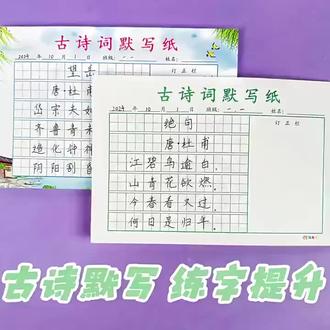 古诗词默写纸
2024年 10月 1日 班级: 一·一 姓名:
望岳
订正栏
唐·杜甫
岱宗夫如
齐鲁青未
造化钟神
阴阳割昏
古诗词默写纸
2024年 10月 1日 班级: 一·一 姓名:
绝句
订正栏
唐·杜甫
江碧鸟逾白,
山青花欲燃。
今春看又过,
何日是归年。
古诗默写 练字提升